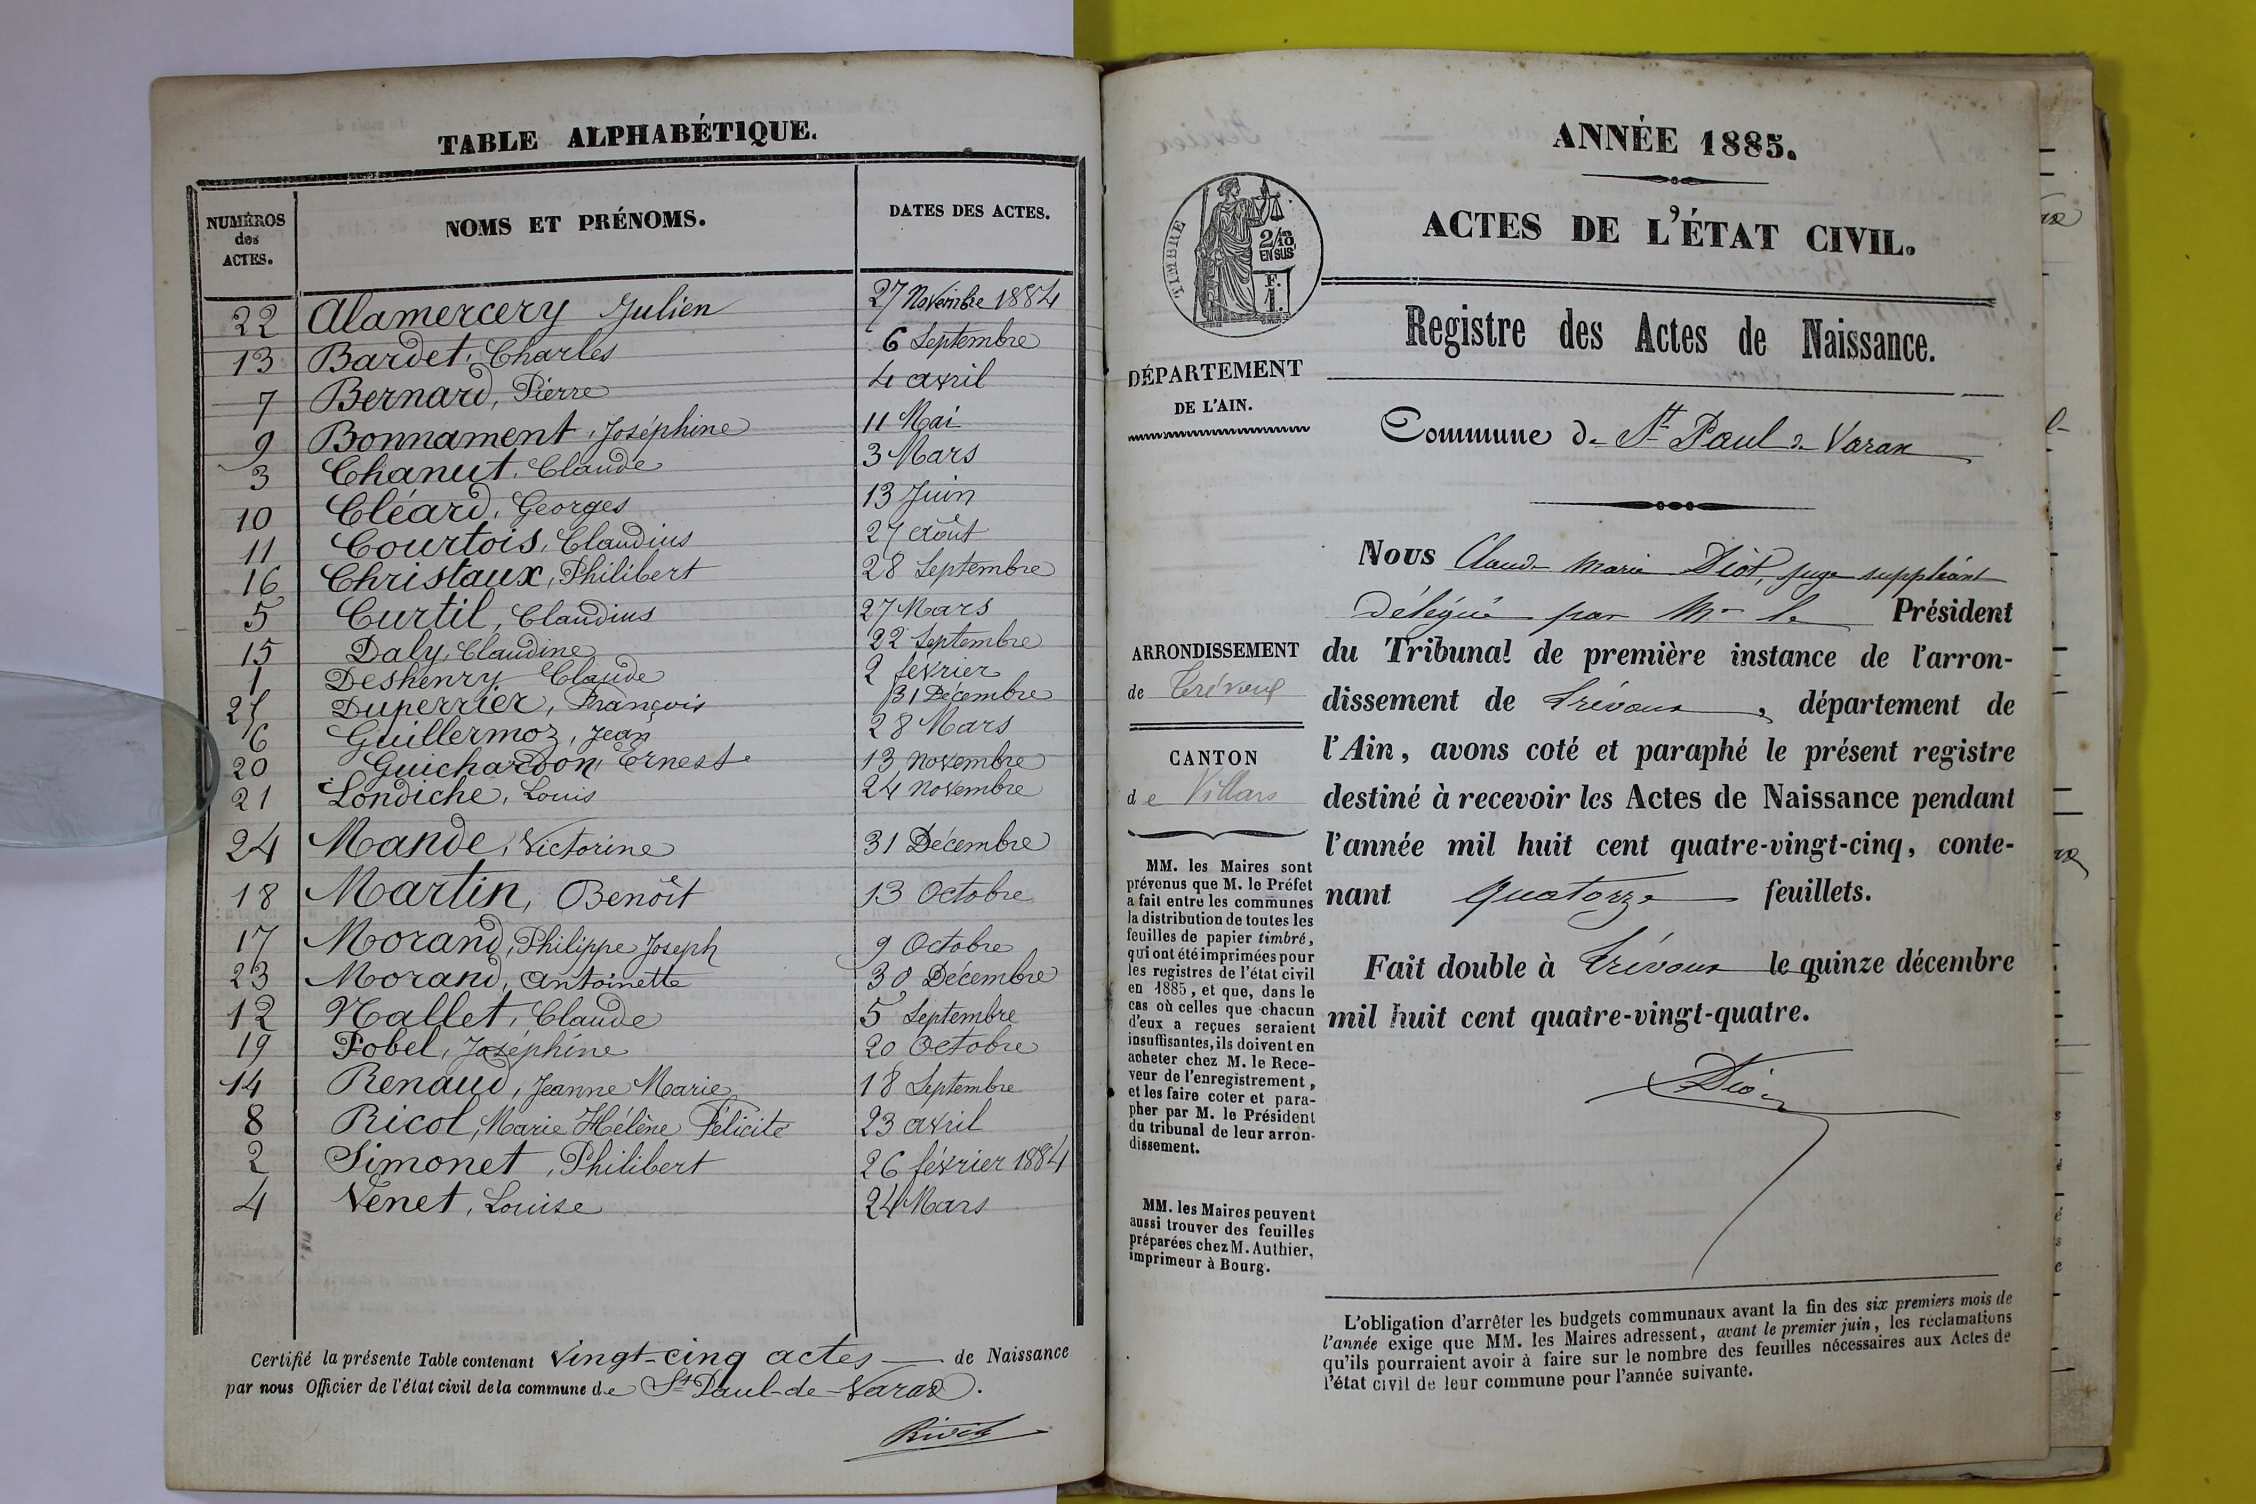 TABLE ALPHABÉTIQUE.
NUMÉROS des ACTES. NOMS ET PRÉNOMS. DATES DES ACTES.
22 Alamercery Julien 27 Novembre 1884
13 Bardet, Charles 6 Septembre
7 Bernard, Pierre 4 avril
9 Bonnament, Joséphine 11 Mai
3 Chanut, Claude 3 Mars
10 Cléard, Georges 13 Juin
11 Courtois, Claudius 27 août
16 Christaux, Philibert 28 Septembre
5 Curtil, Claudius 27 Mars
15 Daly, Claudine 22 Septembre
1 Deshenry Claude 2 février
25 Duperrier, François 31 Décembre
6 Guillermoz, Jean 28 Mars
20 Guichardon, Ernest 13 novembre
21 Londiche, Louis 24 novembre
24 Mande, Victorine 31 Décembre
18 Martin, Benoît 13 Octobre
17 Morand, Philippe Joseph 9 Octobre
23 Morand, Antoinette 30 Décembre
12 Nallet, Claude 5 Septembre
19 Pobel, Joséphine 20 Octobre
14 Renaud, Jeanne Marie 18 Septembre
8 Ricol, Marie Hélène Félicité 23 avril
2 Simonet, Philibert 26 février 1884
4 Venet, Louise 24 Mars
Certifié la présente Table contenant vingt-cinq actes de Naissance
par nous Officier de l'état civil de la commune de St Paul-de-Varax.
ANNÉE 1885.
ACTES DE L'ÉTAT CIVIL.
TIMBRE
2/10
EN SUS
F.
1.
Registre des Actes de Naissance.
DÉPARTEMENT
DE L'AIN.
Commune de St Paul de Varax
Nous Claude Marie Diot, juge suppléant
délégué par Mr le Président
du Tribunal de première instance de l'arron-
dissement de Trévoux, département de
l'Ain, avons coté et paraphé le présent registre
destiné à recevoir les Actes de Naissance pendant
l'année mil huit cent quatre-vingt-cinq, conte-
nant quatorze feuillets.
Fait double à Trévoux le quinze décembre
mil huit cent quatre-vingt-quatre.
ARRONDISSEMENT
de Trévoux
CANTON
de Villars
MM. les Maires sont
prévenus que M. le Préfet
a fait entre les communes
la distribution de toutes les
feuilles de papier timbré,
qui ont été imprimées pour
les registres de l'état civil
en 1885, et que, dans le
cas où celles que chacun
d'eux a reçues seraient
insuffisantes, ils doivent en
acheter chez M. le Rece-
veur de l'enregistrement,
et les faire coter et para-
pher par M. le Président
du tribunal de leur arron-
dissement.
MM. les Maires peuvent
aussi trouver des feuilles
préparées chez M. Authier,
imprimeur à Bourg.
L'obligation d'arrêter les budgets communaux avant la fin des six premiers mois de
l'année exige que MM. les Maires adressent, avant le premier juin, les réclamations
qu'ils pourraient avoir à faire sur le nombre des feuilles nécessaires aux Actes de
l'état civil de leur commune pour l'année suivante.